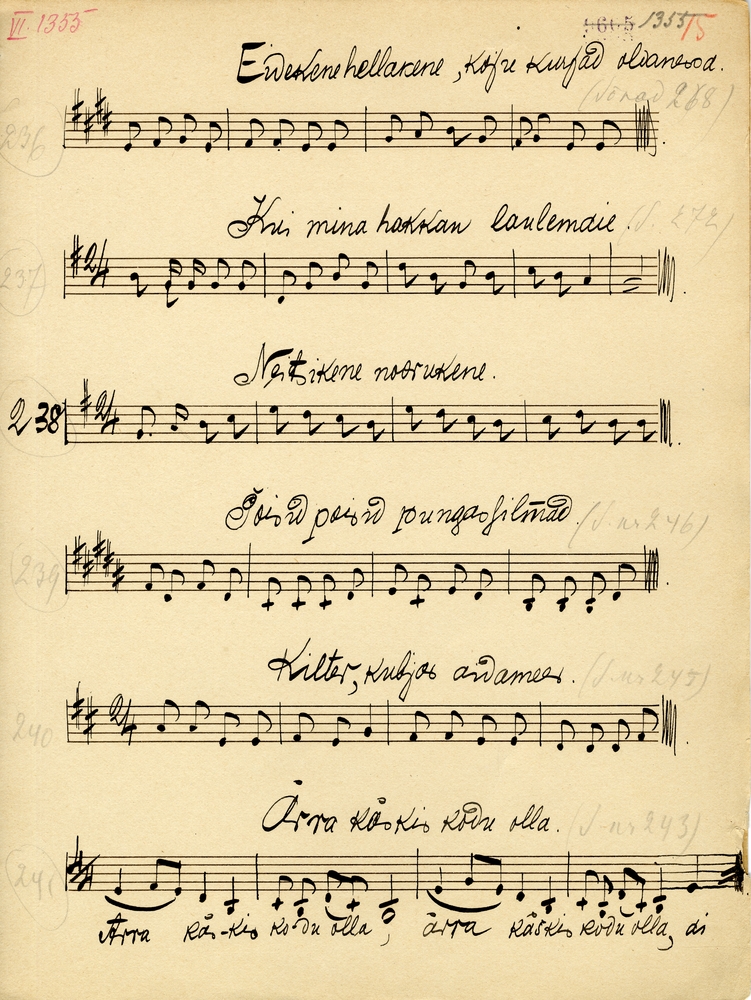 VI. 1355
1355/15
Eidekene hellakene, köšü kurjad oldanessa.
(Sõnad 268)
236
Kui mina hakkan laulemdie. (S. 272)
237
2/4
Neitsikene noorukene.
238
2/4
Poisid poisid pungassilmad. (S. nr 246)
239
Kilter, kubjas aidamees. (S. nr 245)
240
2/4
Ärra käskis kodu olla. (S. nr 243)
241
Ärra käs-kis ko-du olla, ärra käskis kodu olla, ai